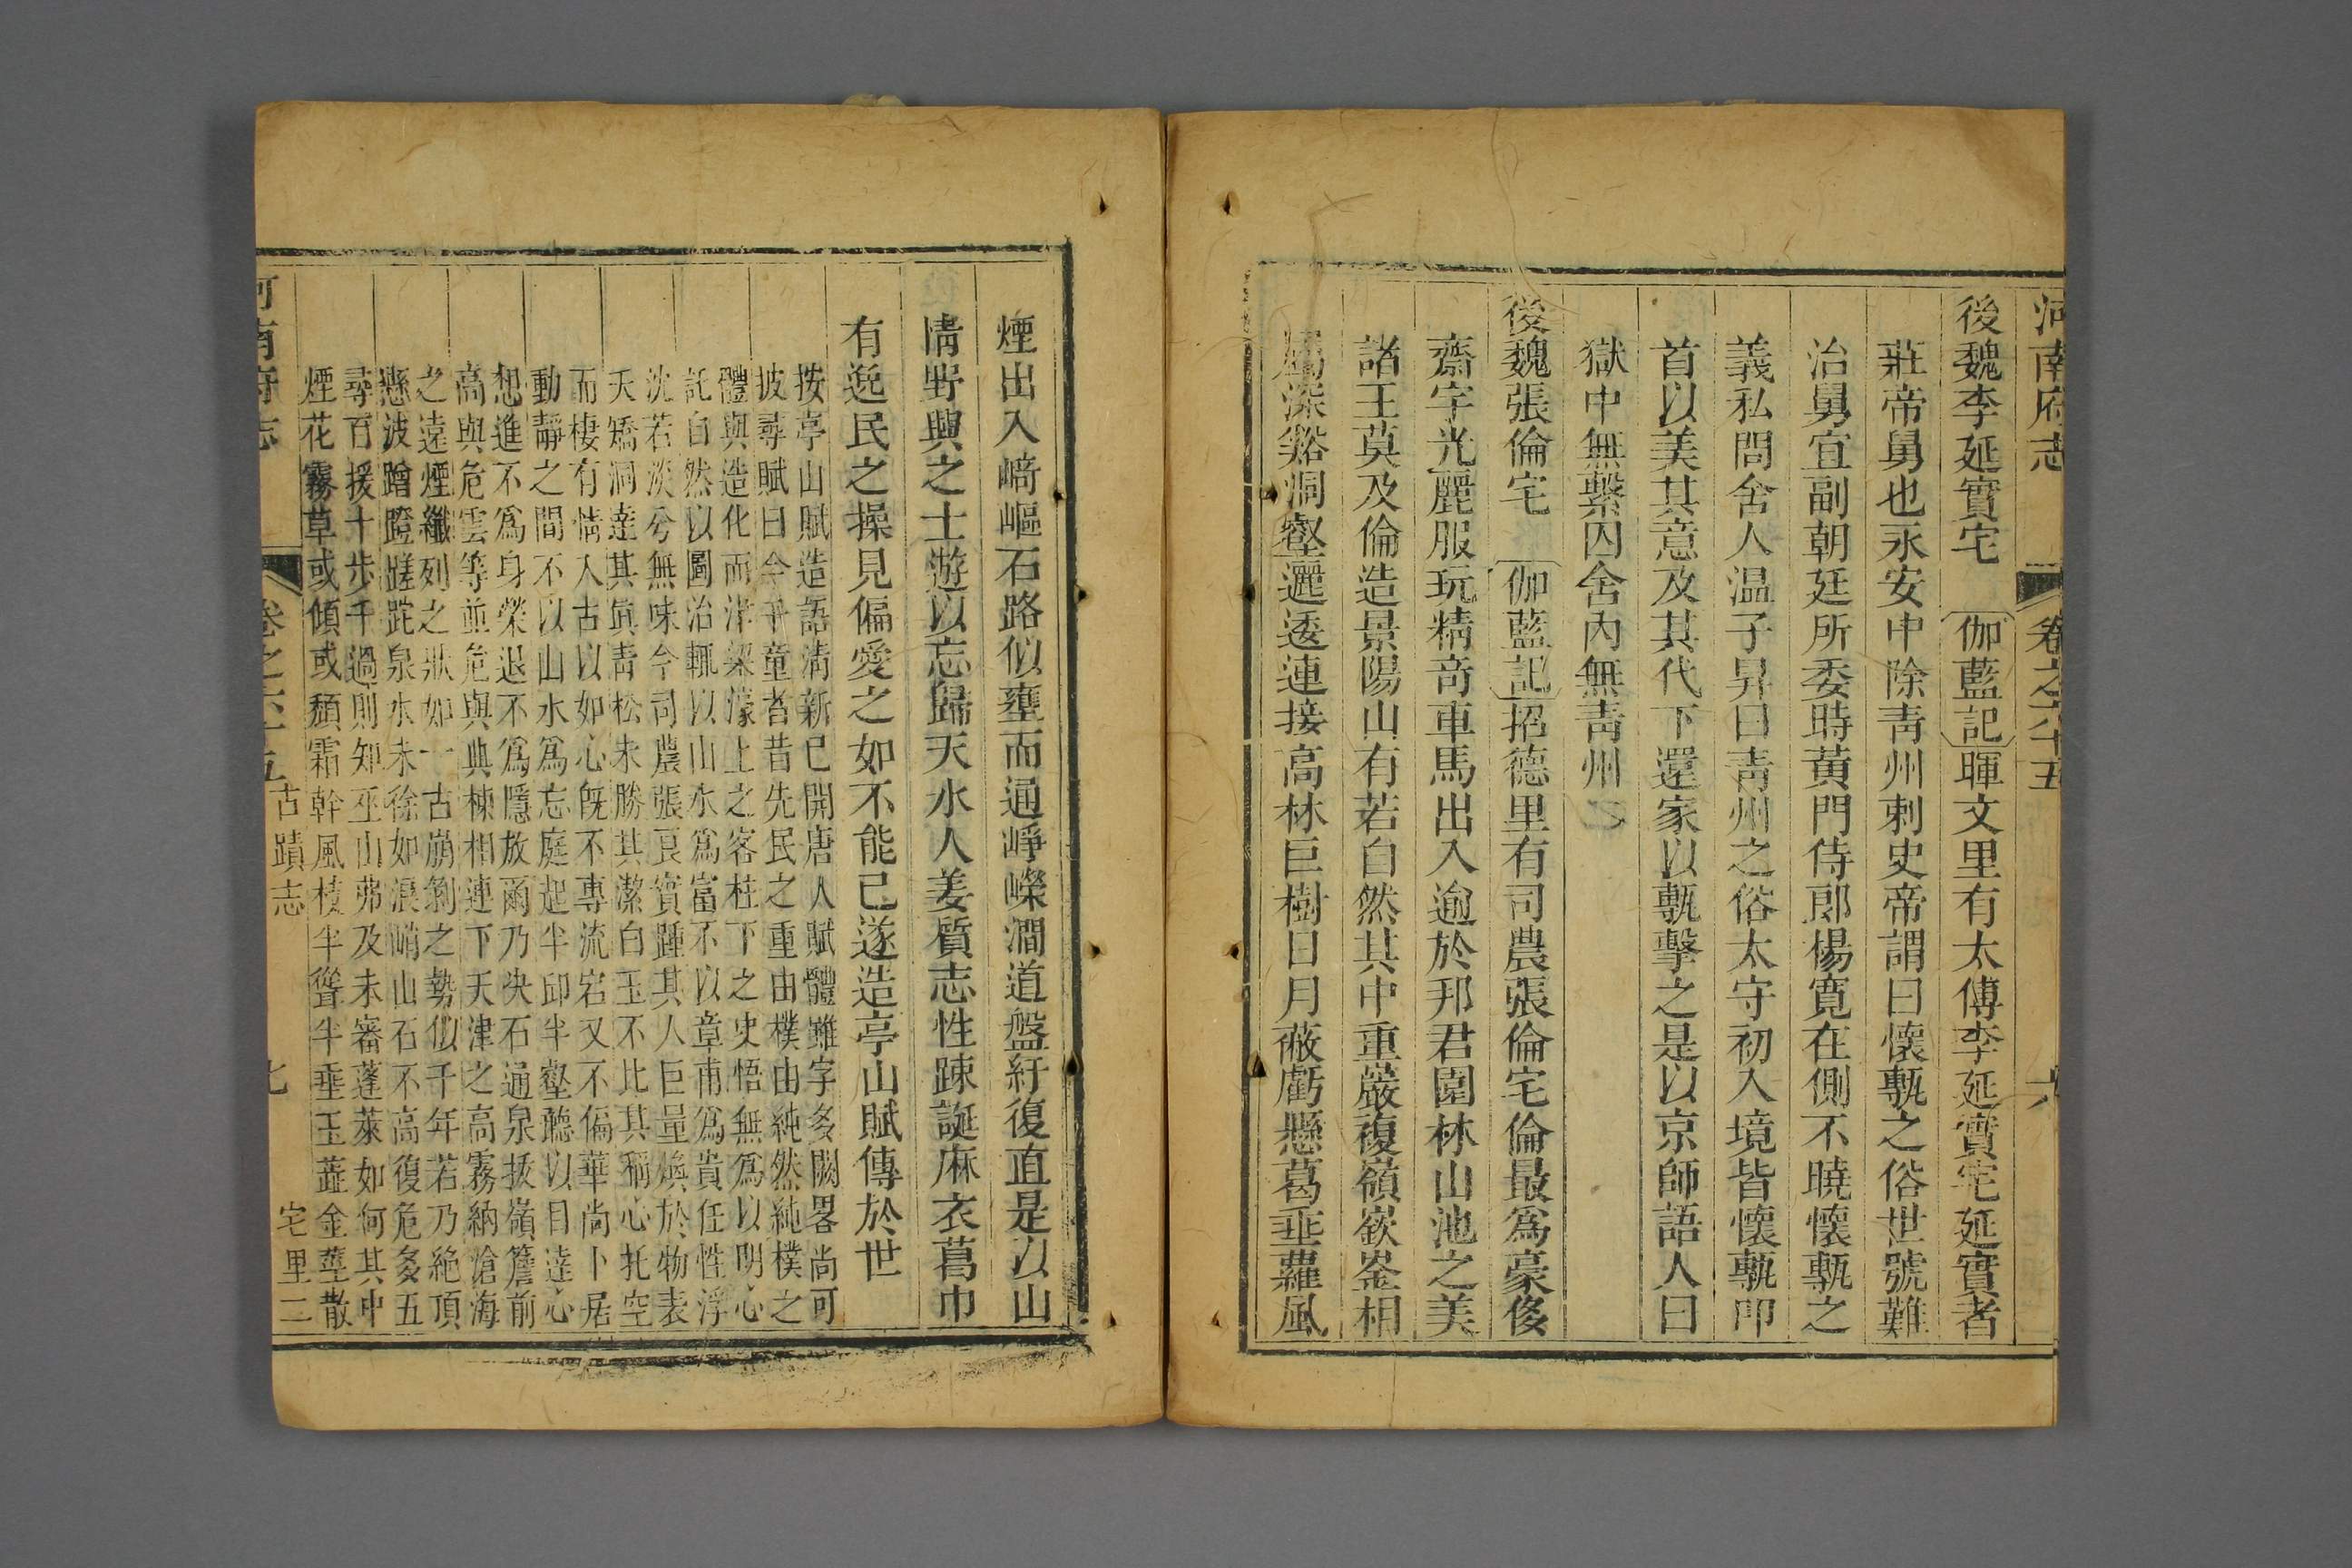 河南府志 卷之六十五 六
後魏李延實宅 伽藍記暉文里有太傅李延實宅延實者
莊帝舅也永安中除靑州刺史帝謂曰懷甎之俗世號難
治舅宜副朝廷所委時黃門侍郎楊寬在側不曉懷甎之
義私問舍人温子昇曰靑州之俗太守初入境皆懷甎叩
首以美其意及其代下還家以甎擊之是以京師語人曰
獄中無繫囚舍內無靑州
後魏張倫宅 伽藍記招德里有司農張倫宅倫最爲豪侈
齋宇光麗服玩精奇車馬出入逾於邦君園林山池之美
諸王莫及倫造景陽山有若自然其中重巖複嶺嶔崟相
屬深谿洞壑邐逶連接高林巨樹日月蔽虧懸葛垂蘿風
煙出入﨑嶇石路似壅而通崢嶸澗道盤紆復直是以山
情野興之士遊以忘歸天水人姜質志性踈誕麻衣葛巾
有逸民之操見偏愛之如不能已遂造亭山賦傳於世
按亭山賦造語淸新已開唐人賦體雖字多闕畧尚可
披尋賦曰今乎童者昔先民之重由樸由純然純樸之
體與造化而津梁濠上之客柱下之史悟無爲以明心
託自然以圖治輒以山水爲富不以章甫爲貴任性浮
沈若淡兮無味今司農張良實踵其人巨量煥於物表
夭矯洞達其眞靑松未勝其潔白玉不比其稱心托空
而棲有情入古以如心旣不專流宕又不偏華尚卜居
動靜之間不以山水爲忘庭起半邱半壑聽以目達心
想進不爲身榮退不爲隱放爾乃决石通泉拔嶺簷前
高與危雲等並危與典棟相連下天津之高霧納滄海
之遠煙纖列之狀如一古崩剝之勢似千年若乃絶頂
懸波蹭蹬蹉跎泉水未徐如浪峭山石不高復危多五
尋百援十步千過則知巫山弗及未審蓬萊如何其中
煙花霧草或傾或頹霜幹風枝半聳半垂玉蕋金莖散
河南府志 卷之六十五 古蹟志 七 宅里二